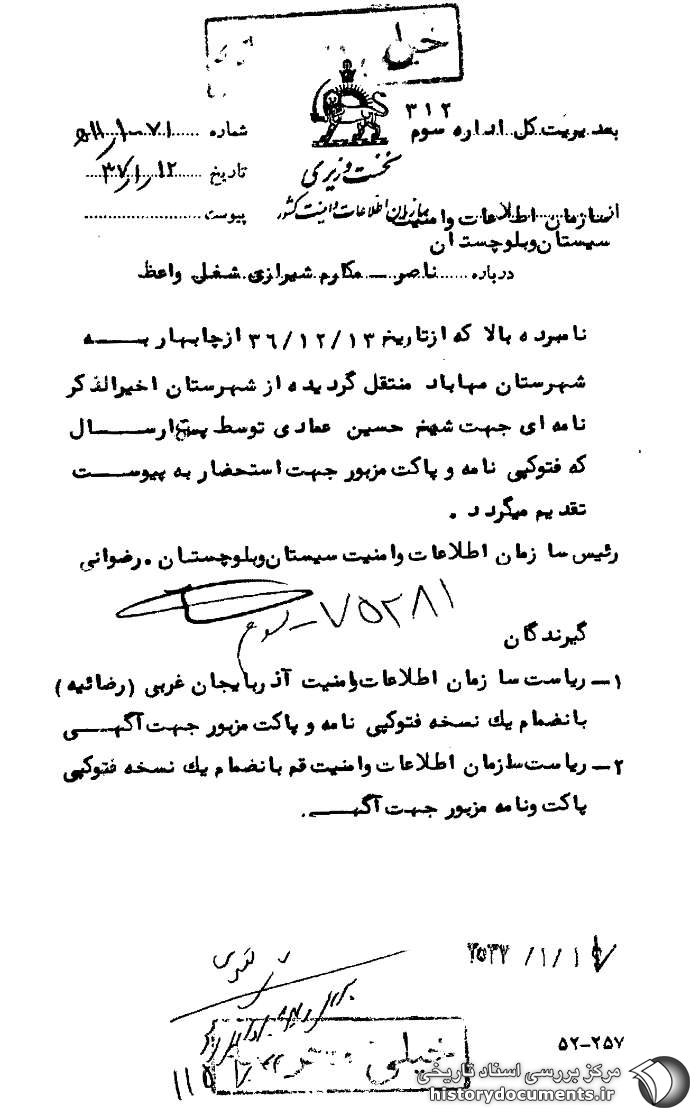 خیلی
بمدیریت کل اداره سوم ۳۱۲
شماره
تاریخ ۳۷/۱/۱۲
پیوست
نخست وزیری
سازمان اطلاعات و امنیت کشور
از سازمان اطلاعات وامنیت
سیستان وبلوچستان
درباره ناصر ــ مکارم شیرازی شغل واعظ
نامبرده بالا که ازتاریخ ۳۶/۱۲/۱۳ ازچابهار به
شهرستان مهاباد منتقل گردیده از شهرستان اخیرالذکر
نامه ای جهت شیخ حسین عمادی توسط پست ارسال
که فتوکپی نامه و پاکت مزبور جهت استحضار به پیوست
تقدیم میگردد .
رئیس سازمان اطلاعات وامنیت سیستان وبلوچستان . رضوانی
۷۵۲۸۱
گیرندگان
۱ــ ریاست سازمان اطلاعات وامنیت آذربایجان غربی (رضائیه)
بانضمام یك نسخه فتوکپی نامه و پاکت مزبور جهت آگهی
۲ــ ریاست سازمان اطلاعات وامنیت قم بانضمام یك نسخه فتوکپی
پاکت ونامه مزبور جهت آگهی .
خیلی محرمانه
۵۲-۲۵۷
مرکز بررسی اسناد تاریخی
historydocuments.ir